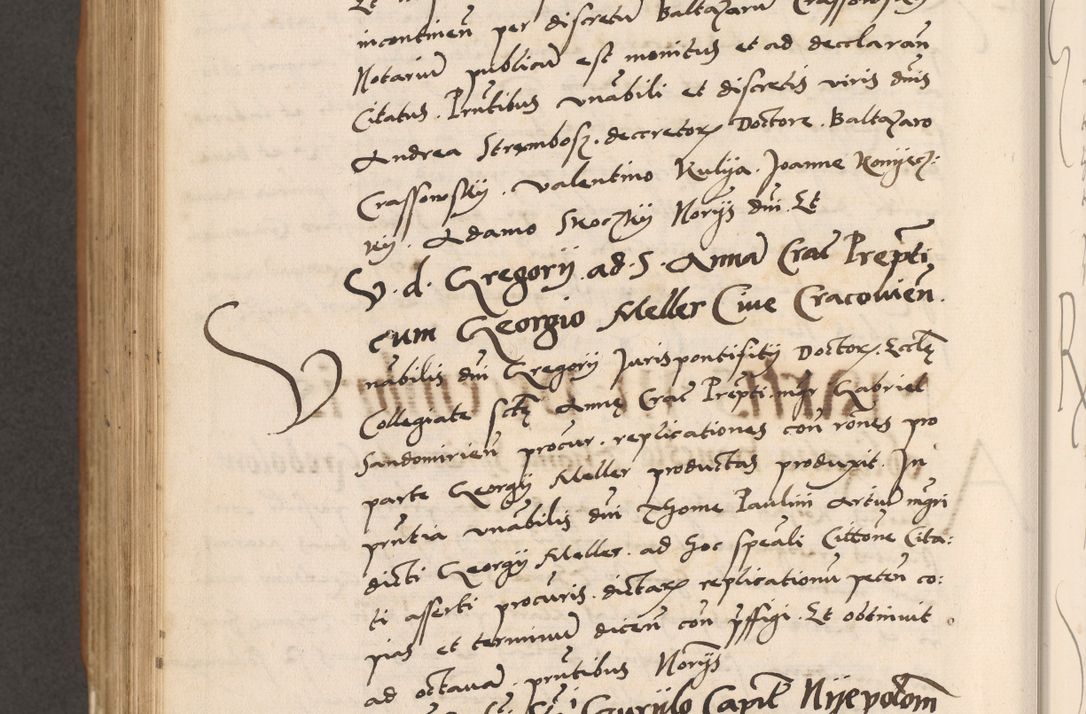 incontineñ per discretũ Baltazarũ Crassowsky
Notariũ publicũ est monitus et ad decclaran̄
Citatus. Pn̄tibus vnābili et discretis viris dn̄is
Andrea Strzembosz. decretor Doctore. Baltazaro
Crassowskÿ. Valentino Kulija. Joanne Konijecz:
kÿ. Adamo Skoczkÿ Nōrijs dn̄i. Et
V. d. Gregorij. ad. S. Annā Crac̄ Prep̄ti
cum Georgio Meller Ciue Cracouień.
Vnābilis dn̄i Gregorij Juris pontifitij Doctor. Eccl̄ę
Collegiate sct̄ę Annę Crac̄ Prep̄ti. mgr̄ Gabriel
Sandomirień procur. replicationes con rōnes pro
parte Georgij Meller productas produxit. In
pn̄tia vnābilis dn̄i Thome Paulini Artiū mgr̄i
dicti Georgij Meller. ad hoc speāli Cittōne Cita:
ti asserti procuris. dictar replicationū peteń co:
pias et terminū diceń con p̄ffigi. Et obtinuit
ad octauā. pn̄tibus Nōrijs
Gauriilo Capit̄ Nijepolom̄